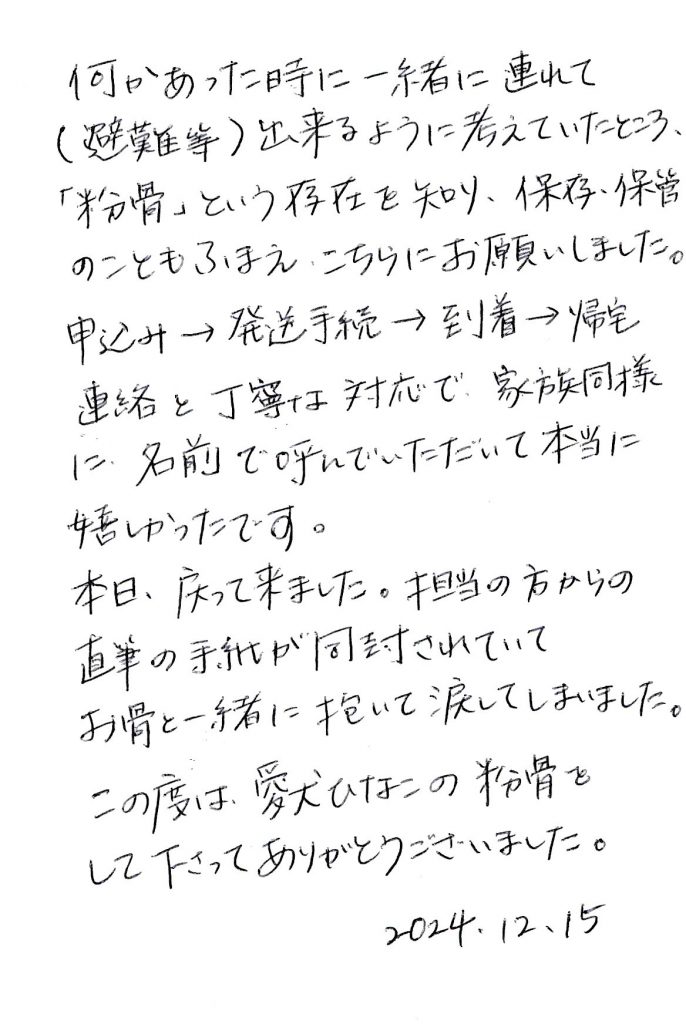 何かあった時に一緒に連れて
(避難等)出来るように考えていたところ、
「粉骨」という存在を知り、保存・保管
のこともふまえ、こちらにお願いしました。
申込み→発送手続→到着→帰宅
連絡と丁寧な対応で、家族同様
に、名前で呼んでいただいて本当に
嬉しかったです。
本日、戻って来ました。担当の方からの
直筆の手紙が同封されていて
お骨と一緒に抱いて涙してしまいました。
この度は、愛犬ひなこの粉骨を
して下さってありがとうございました。
2024.12.15